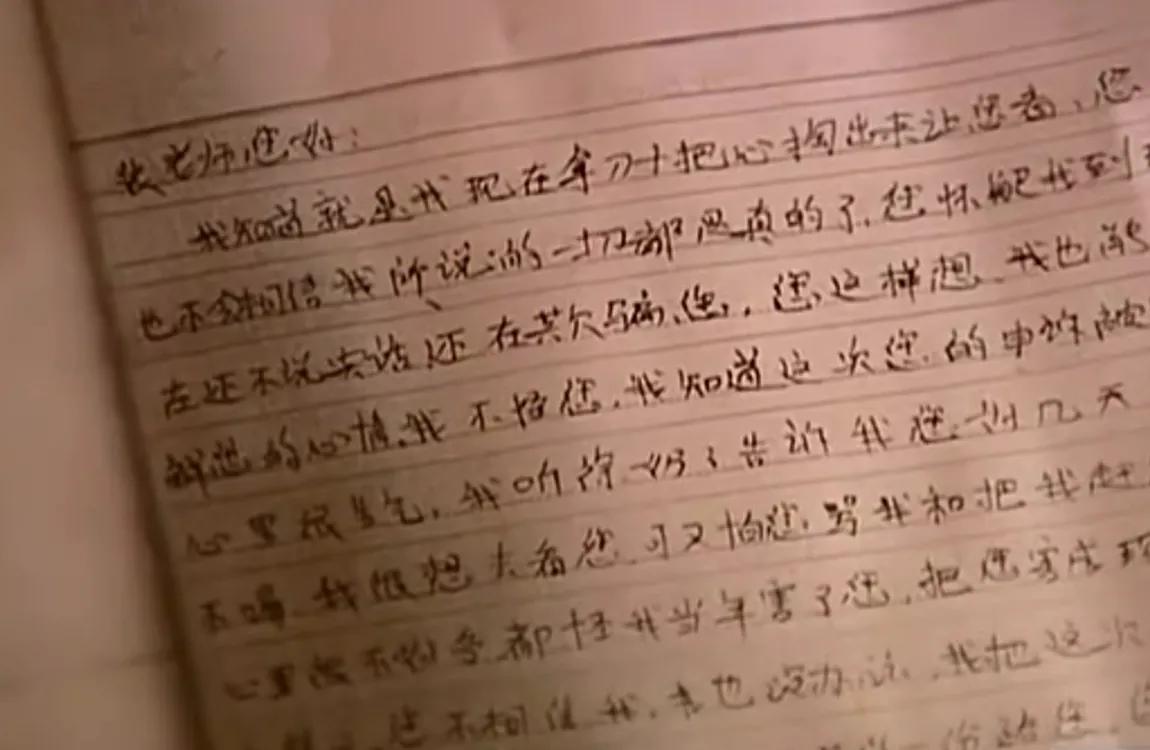 张老师您好：
我知道就是我现在拿刀把心掏出来让您看、您
也不会相信我所说的一切都是真的了.您怀疑我到
在还不说实话还在欺骗您,您这样想.我也能
解您的心情.我不怪您.我知道这次您的申诉被
心里很生气,我听许 告诉我您 几天
不喝.我很想去看您可又怕您骂我和把我赶
心里很不 都怪我当年害了您.把您害成
您不相信我.我也没办法.我把这次
您